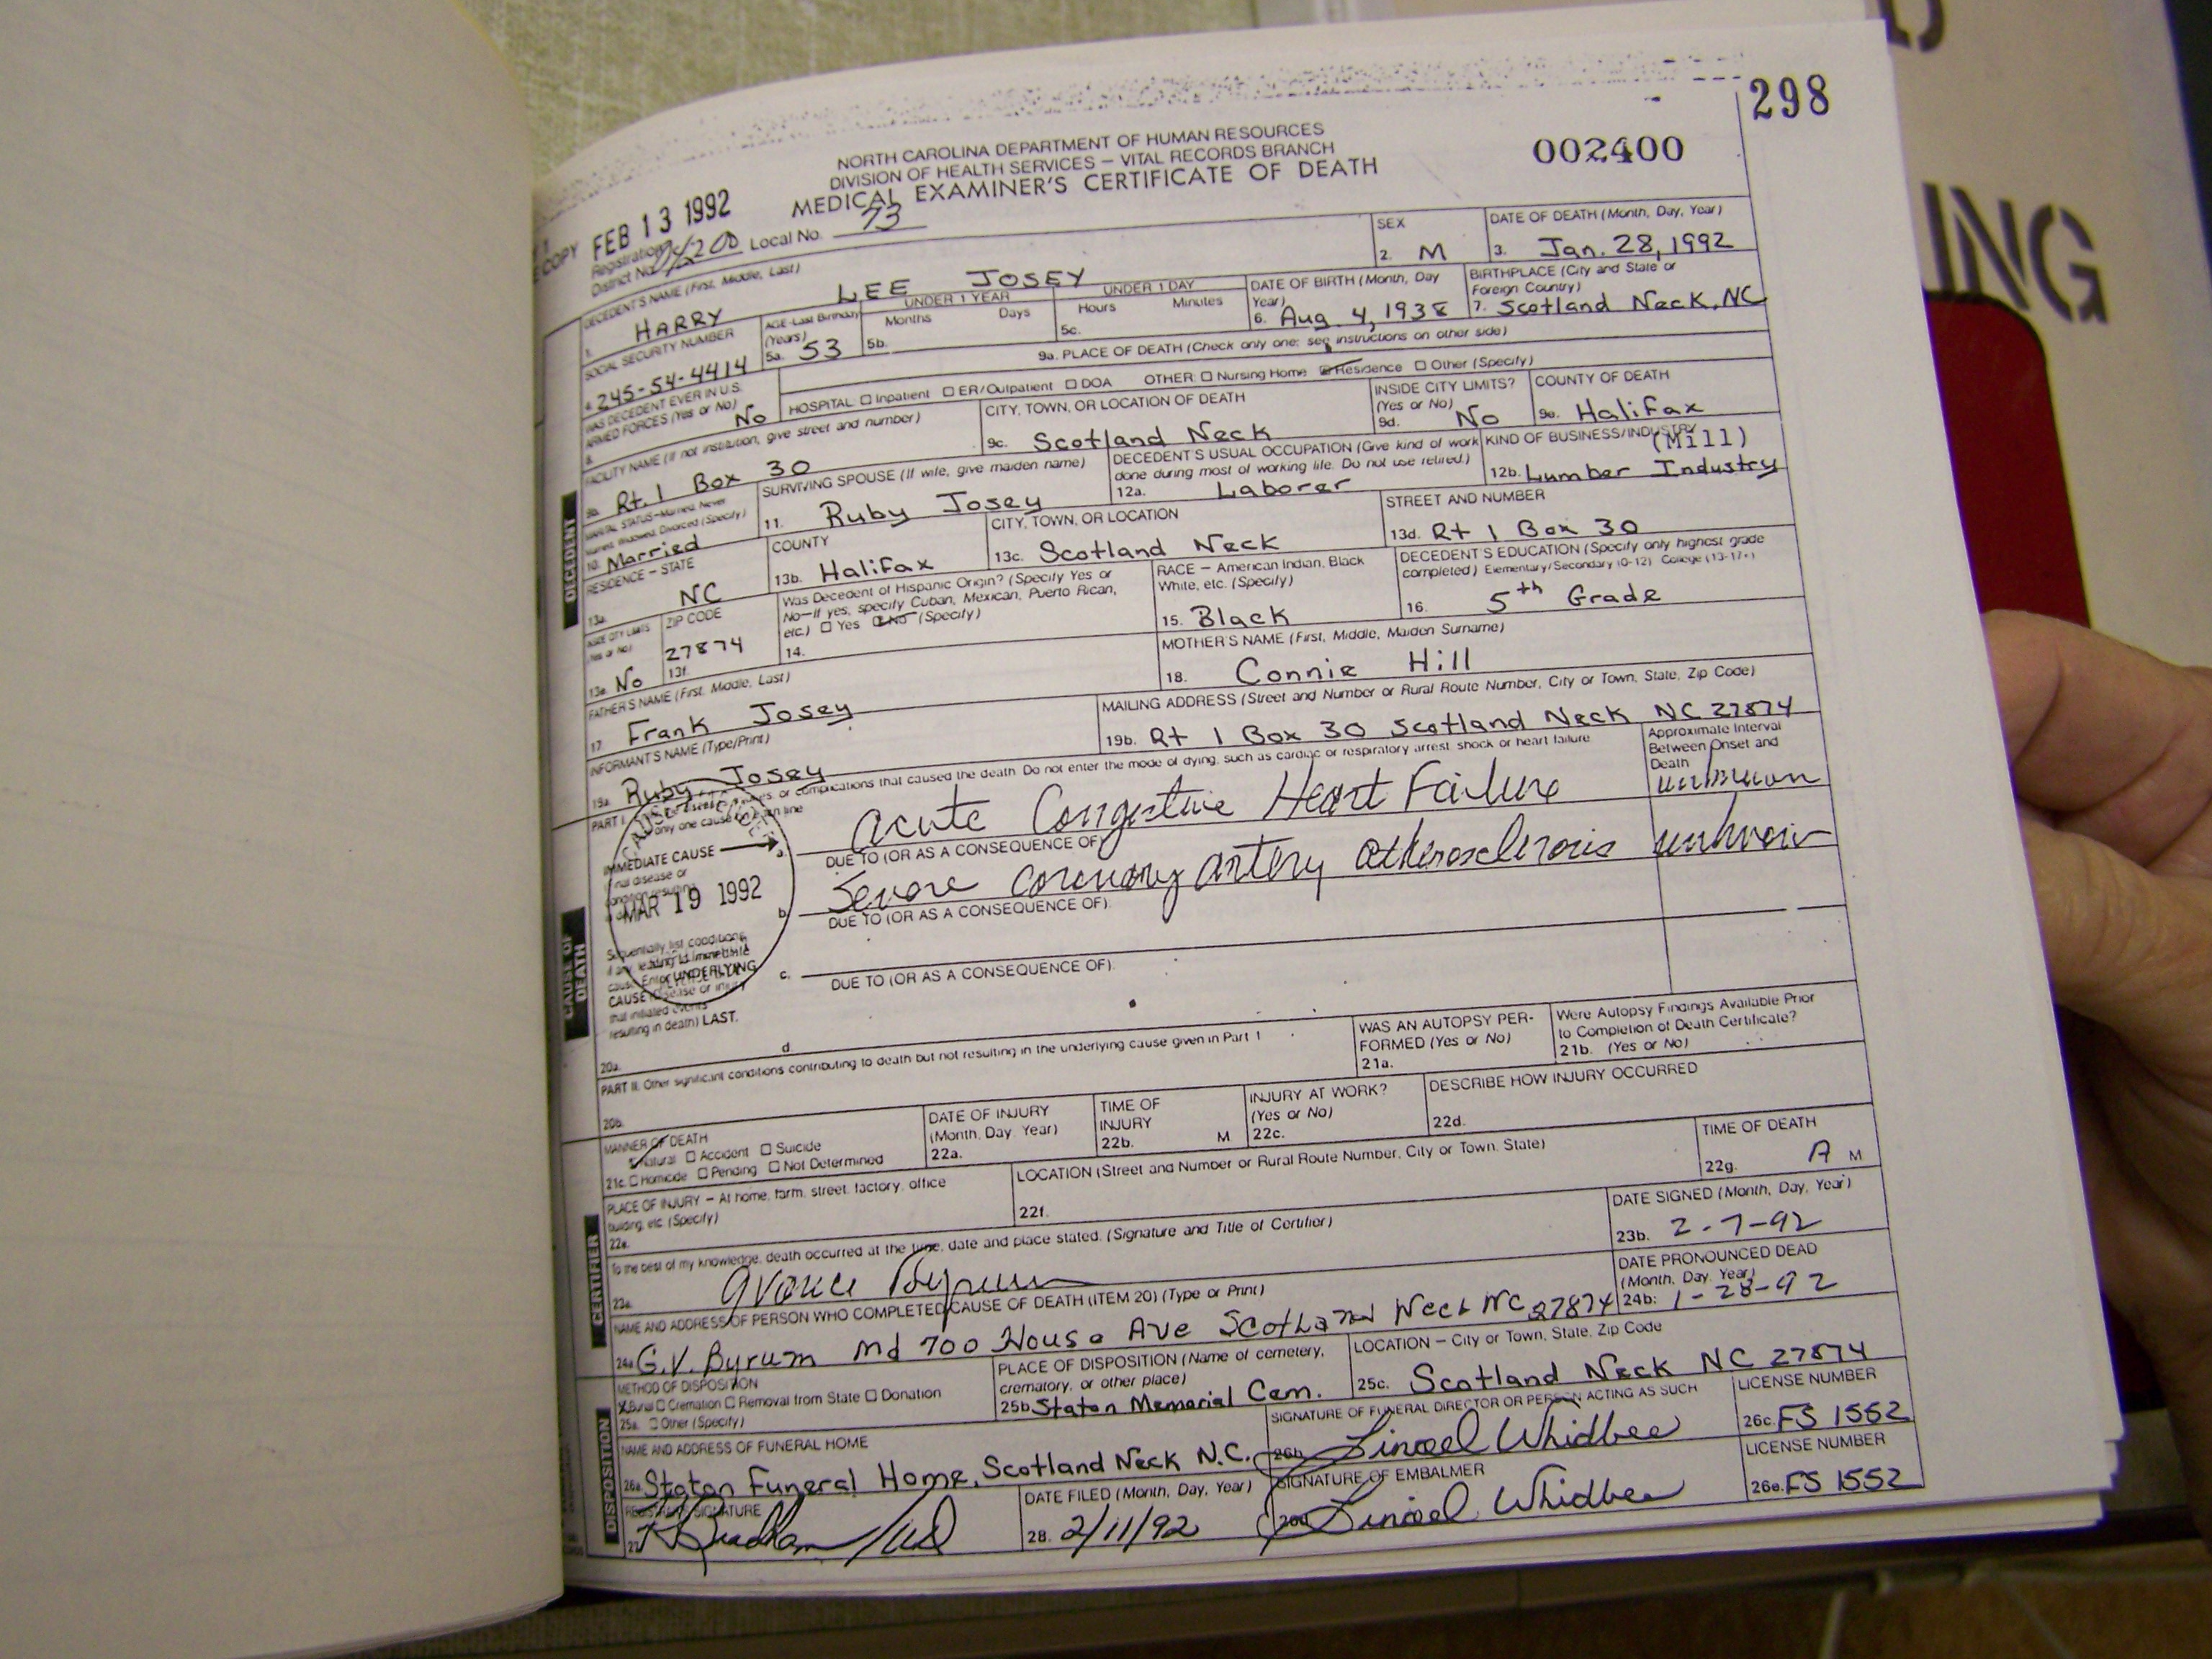 298
002400
NORTH CAROLINA DEPARTMENT OF HUMAN RESOURCES
DIVISION OF HEALTH SERVICES – VITAL RECORDS BRANCH
MEDICAL EXAMINER'S CERTIFICATE OF DEATH
COPY FEB 13 1992
Registration District No. Local No. 73
DECEDENT'S NAME (First, Middle, Last)
1. HARRY LEE JOSEY
SEX
2. M
DATE OF DEATH (Month, Day, Year)
3. Jan. 28, 1992
SOCIAL SECURITY NUMBER
4. 245-54-4414
AGE-Last Birthday (Years)
5a. 53
UNDER 1 YEAR
Months Days
5b.
UNDER 1 DAY
Hours Minutes
5c.
DATE OF BIRTH (Month, Day Year)
6. Aug 4, 1938
BIRTHPLACE (City and State or Foreign Country)
7. Scotland Neck, NC
WAS DECEDENT EVER IN U.S. ARMED FORCES (Yes or No)
8. No
9a. PLACE OF DEATH (Check only one; see instructions on other side)
HOSPITAL: Inpatient ER/Outpatient DOA OTHER: Nursing Home Residence Other (Specify)
FACILITY NAME (If not institution, give street and number)
9b. Rt. 1 Box 30
CITY, TOWN, OR LOCATION OF DEATH
9c. Scotland Neck
INSIDE CITY LIMITS? (Yes or No)
9d. No
COUNTY OF DEATH
9e. Halifax
DECEDENT
MARITAL STATUS–Married, Never Married, Widowed, Divorced (Specify)
10. Married
SURVIVING SPOUSE (If wife, give maiden name)
11. Ruby Josey
DECEDENT'S USUAL OCCUPATION (Give kind of work done during most of working life. Do not use retired.)
12a. Laborer
KIND OF BUSINESS/INDUSTRY
(Mill)
12b. Lumber Industry
RESIDENCE – STATE
13a. NC
COUNTY
13b. Halifax
CITY, TOWN, OR LOCATION
13c. Scotland Neck
STREET AND NUMBER
13d. Rt 1 Box 30
INSIDE CITY LIMITS (Yes or No)
13e. No
ZIP CODE
27874
13f.
Was Decedent of Hispanic Origin? (Specify Yes or No—If yes, specify Cuban, Mexican, Puerto Rican, etc.) Yes No (Specify)
14.
RACE – American Indian, Black White, etc. (Specify)
15. Black
DECEDENT'S EDUCATION (Specify only highest grade completed) Elementary/Secondary (0-12) College (13-17+)
16. 5th Grade
FATHER'S NAME (First, Middle, Last)
17. Frank Josey
MOTHER'S NAME (First, Middle, Maiden Surname)
18. Connie Hill
INFORMANT'S NAME (Type/Print)
19a. Ruby Josey
MAILING ADDRESS (Street and Number or Rural Route Number, City or Town, State, Zip Code)
19b. Rt 1 Box 30 Scotland Neck NC 27874
PART I. or complications that caused the death. Do not enter the mode of dying, such as cardiac or respiratory arrest, shock or heart failure
only one cause on each line
Approximate Interval Between Onset and Death
IMMEDIATE CAUSE
final disease or condition resulting
a. Acute Congestive Heart Failure unknown
DUE TO (OR AS A CONSEQUENCE OF)
b. Severe coronary artery atherosclerosis unknown
DUE TO (OR AS A CONSEQUENCE OF).
c.
DUE TO (OR AS A CONSEQUENCE OF).
d.
MAR 19 1992
CAUSE OF DEATH
Sequentially list conditions, if any leading to immediate cause. Enter UNDERLYING CAUSE (disease or injury that initiated events resulting in death) LAST.
20a.
PART II. Other significant conditions contributing to death but not resulting in the underlying cause given in Part 1
20b.
WAS AN AUTOPSY PERFORMED (Yes or No)
21a.
Were Autopsy Findings Available Prior to Completion of Death Certificate?
21b. (Yes or No)
MANNER OF DEATH
Natural Accident Suicide
21c. Homicide Pending Not Determined
DATE OF INJURY (Month, Day, Year)
22a.
TIME OF INJURY
22b. M
INJURY AT WORK? (Yes or No)
22c.
DESCRIBE HOW INJURY OCCURRED
22d.
PLACE OF INJURY – At home, farm, street, factory, office building, etc (Specify)
22e.
LOCATION (Street and Number or Rural Route Number, City or Town, State)
22f.
TIME OF DEATH
22g. A M
CERTIFIER
To the best of my knowledge, death occurred at the time, date and place stated. (Signature and Title of Certifier)
23a. Byrum
DATE SIGNED (Month, Day, Year)
23b. 2-7-92
NAME AND ADDRESS OF PERSON WHO COMPLETED CAUSE OF DEATH (ITEM 20) (Type or Print)
24a. G.V. Byrum md 700 House Ave Scotland Neck NC 27874
DATE PRONOUNCED DEAD (Month, Day, Year)
24b. 1-28-92
DISPOSITION
METHOD OF DISPOSITION
Burial Cremation Removal from State Donation
25a. Other (Specify)
PLACE OF DISPOSITION (Name of cemetery, crematory, or other place)
25b Staton Memorial Cem.
LOCATION – City or Town, State, Zip Code
25c. Scotland Neck NC 27874
NAME AND ADDRESS OF FUNERAL HOME
26a Staton Funeral Home, Scotland Neck N.C.
SIGNATURE OF FUNERAL DIRECTOR OR PERSON ACTING AS SUCH
26b Linwood Whidbee
LICENSE NUMBER
26c. FS 1552
REGISTRAR'S SIGNATURE
27
DATE FILED (Month, Day, Year)
28. 2/11/92
SIGNATURE OF EMBALMER
26d Linwood Whidbee
LICENSE NUMBER
26e. FS 1552
ING